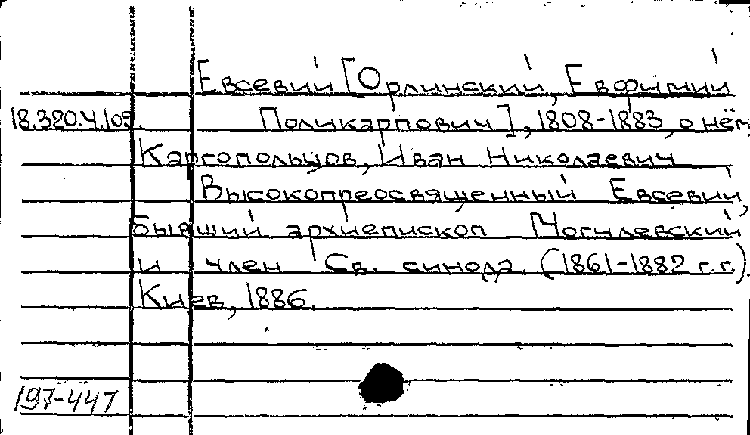 Евсевий [Орлинский, Евфимий
18.320.4.105. Поликарпович], 1808-1883, о нём
Каргопольцов, Иван Николаевич
Высокопреосвященный Евсевий,
бывший архиепископ Могилевский
и член Св. синода. (1861-1882 г.г.).
Киев, 1886.
197-447